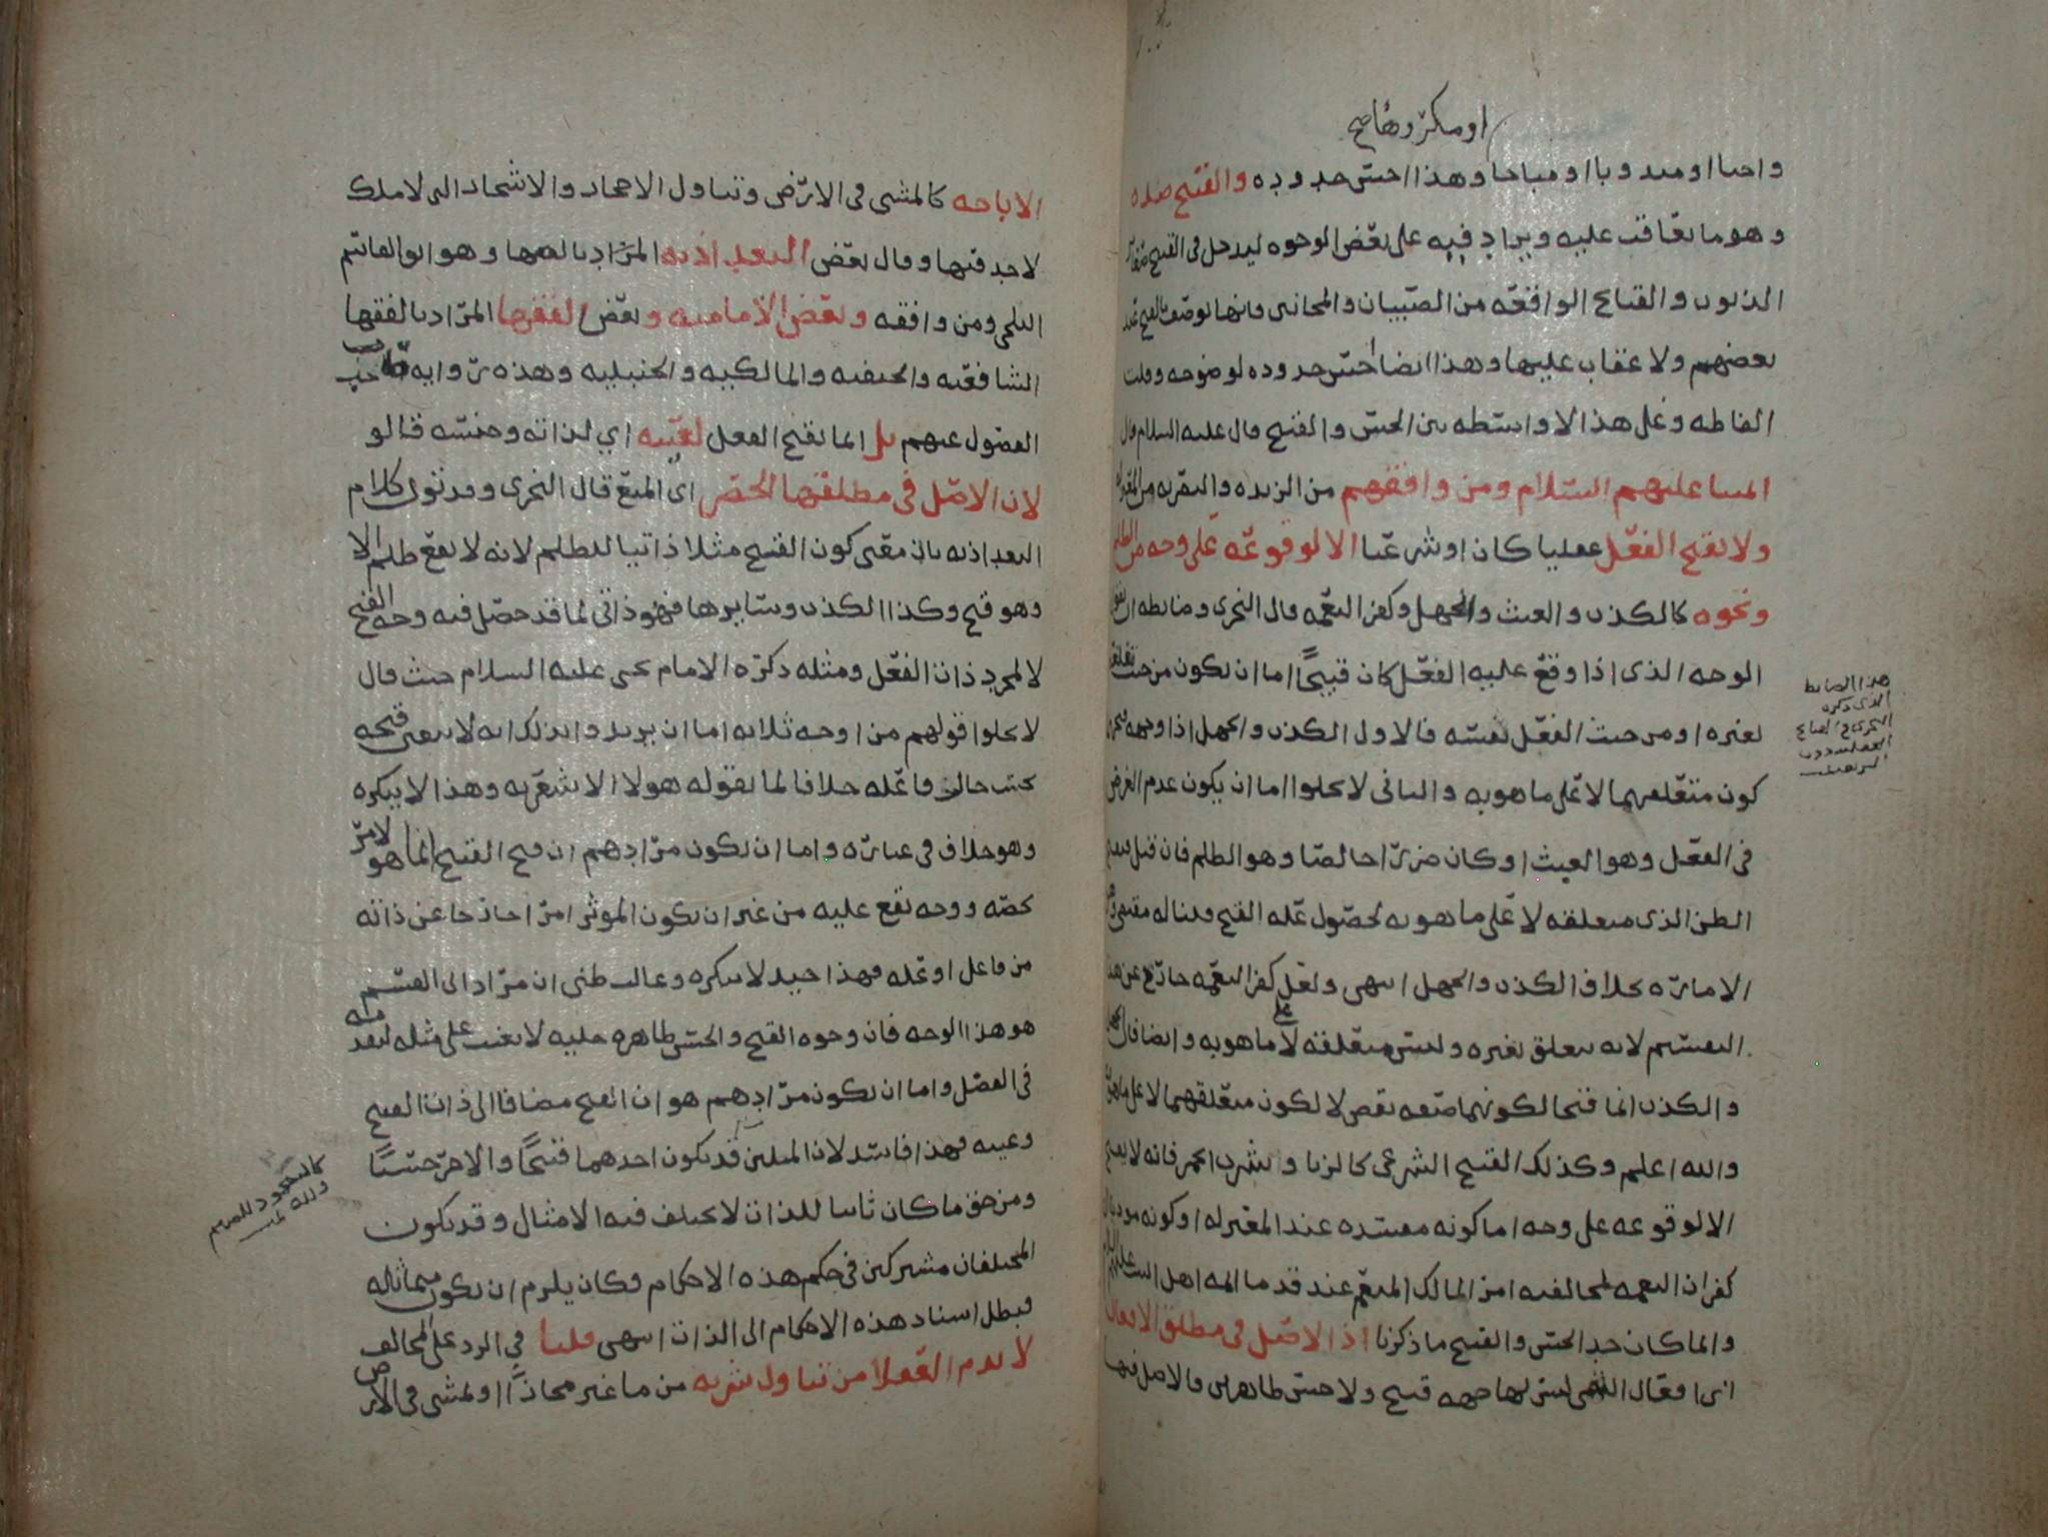 او مكروها صح
واجبا او مندوبا او مباحا وهذا احسن حدوده والقبيح ضده
وهو ما يعاقب عليه ويزاد فيه على بعض الوجوه ليدخل في القبيح
الذنوب والقبائح الواقعة من الصبيان والمجانين فانها توصف بالقبح عند
بعضهم ولا عقاب عليها وهذا ايضا احسن حدوده لوضوحه وقلت
الفاظه وعلى هذا لا واسطه بين الحسن والقبيح قال عليه السلام قال
ائمتنا عليهم السلام ومن وافقهم من الزيديه والبصريه من المعتزله
ولا يقبح الفعل عقليا كان او شرعيا الا لوقوعه على وجه من الظلم
ونحوه كالكذب والعبث والجهل وكفر النعمه قال النجري وضابطه ان
الوجه الذي اذا وقع عليه الفعل كان قبيحًا اما ان يكون من حيث تعلقه
بغيره او من حيث الفعل نفسه فالاول الكذب والجهل اذا وجه
كون متعلقهما لا على ما هو به والثاني لا يخلوا اما ان يكون عدم الغرض
في الفعل وهو العبث او كان ضررا خالصا وهو الظلم فان قيل
الظن الذي متعلقه لا على ما هو به لحصول علة القبح قلنا له مقتضى
الاماره بخلاف الكذب والجهل انتهى ولعل كفر النعمه خارج عن هذا
التقسيم لانه يتعلق بغيره وليس متعلقه لا على ما هو به وايضا فالجهل
والكذب انما قبحا لكونهما صفه نقص لا لكون متعلقهما لا على ما هو به
والله اعلم وكذلك القبيح الشرعي كالزنا وشرب الخمر فانه لا يقبح
الا لوقوعه على وجه اما كونه مفسده عند المعتزله او كونه
كفران النعمه لمخالفته امر المالك المنعم عند قدماء ائمه اهل البيت عليهم السلام
وانما كان حد الحسن والقبيح ما ذكرنا اذ الاصل في مطلق الافعال
اي افعال التي ليس لها جهه قبح ولا حسن ظاهرين فالاصل فيها
هذا الضابط
الذي ذكره
النجري في القبائح
العقليه دون
الشرعيه
الاباحه كالمشي في الارض وتناول الاحجار والاشجار التي لا ملك
لاحد فيها وقال بعض البغداذيه المراد بالبعض وهو ابو القاسم
البلخي ومن وافقه وبعض الاماميه وبعض الفقها المراد بالفقها
الشافعيه والحنفيه والمالكيه والحنبليه وهذه روايه صاحب
الفصول عنهم بل انما يقبح الفعل لعينه اي لذاته وجنسه قالو
لان الاصل في مطلقها الحضر اي المنع قال النجري وقد تؤول كلام
البغداذيه بان معنى كون القبح مثلا ذاتيا للظلم لانه لا يقع ظلم الا
وهو قبيح وكذا الكذب وسايرها فهو ذاتي لما قد حصل فيه وجه القبح
لا لمجرد ذات الفعل ومثله ذكره الامام يحيى عليه السلام حيث قال
لا يخلوا قولهم من اوجه ثلاثه اما ان يريدوا بذلك انه لا يتغير قبحه
بحسب حال فاعله خلافا لما يقوله هولا الاشعريه وهذا لا ننكره
وهو خلاف في عباره واما ان يكون مرادهم ان قبح القبيح انما هو لامر
يخصه ووجه يقع عليه من غير ان يكون الموثر امرا خارجا عن ذاته
من فاعل او علة فهذا جيد لا ننكره وغالب ظني ان مراد ابي القسم
هو هذا الوجه فان وجوه القبح والحسن ظاهره جليه لا تغيب على مثله لبعد
في الفضل واما ان يكون مرادهم هو ان القبح مضافا الى ذات القبيح
وعينه فهذا فاسد لان المثلين قد يكون احدهما قبيحًا والاخر حسنًا
ومن حق ما كان ثابتا للذات لا يختلف فيه الامثال وقد يكون
المختلفان مشتركين في حكم هذه الاحكام فكان يلزم ان يكون متماثله
فبطل اسناد هذه الاحكام الى الذات انتهى قلنا في الرد على المخالف
لا يذم العقلا من تناول شربه من ماء غير محاز او لمشى في الارض
كالسجود للصنم
ولله